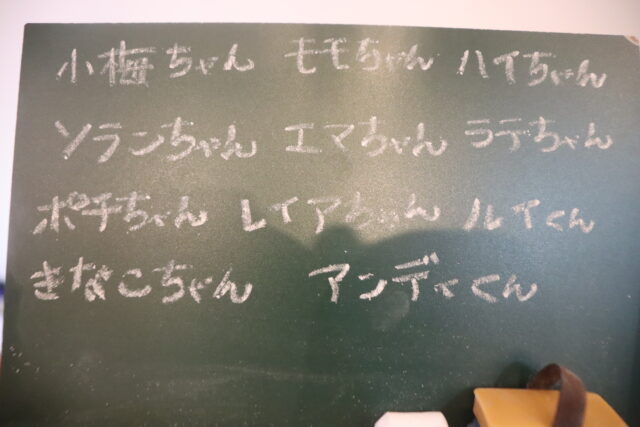 小梅ちゃん モモちゃん ハイちゃん
ソランちゃん エマちゃん ラテちゃん
ポチちゃん レイアちゃん ルイくん
きなこちゃん アンディくん